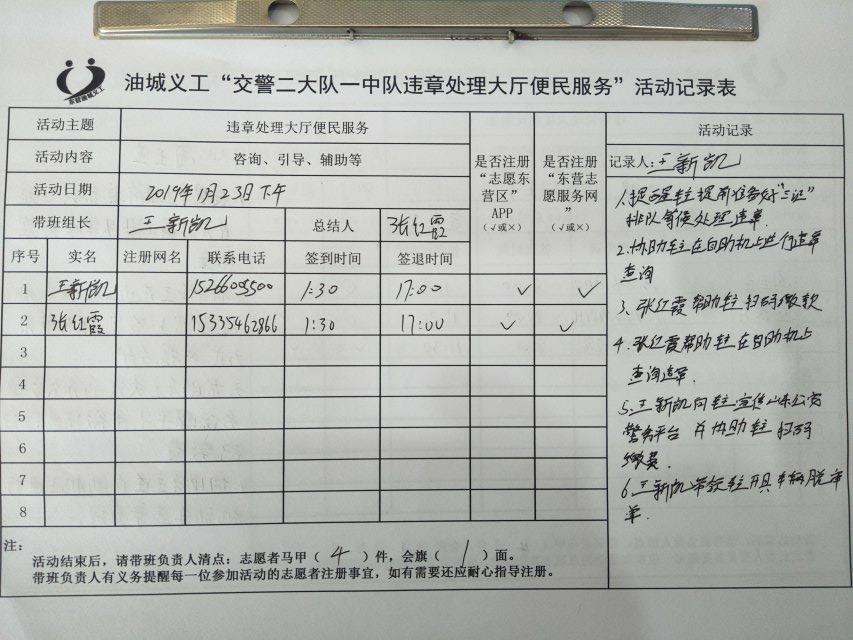 东营油城义工
油城义工“交警二大队一中队违章处理大厅便民服务”活动记录表
活动主题 违章处理大厅便民服务
活动内容 咨询、引导、辅助等
活动日期 2019年1月23日下午
带班组长 王新凯 总结人 张红霞
是否注册“志愿东营区”APP（√或×）
是否注册“东营志愿服务网”（√或×）
序号 实名 注册网名 联系电话 签到时间 签退时间
1 王新凯 1:30 17:00 √ √
2 张红霞 15335462866 1:30 17:00 √ √
3
4
5
6
7
8
注：
活动结束后，请带班负责人清点：志愿者马甲（ 4 ）件，会旗（ 1 ）面。
带班负责人有义务提醒每一位参加活动的志愿者注册事宜，如有需要还应耐心指导注册。
活动记录
记录人：王新凯
1、提醒车主提前准备好“三证”
排队等候处理违章.
2.协助车主在自助机上进行违章
查询
3、张红霞帮助车主扫码缴款
4.张红霞帮助车主在自助机上
查询违章.
5.王新凯向车主宣传山东公安
警务平台 并协助车主扫码
6.王新凯带领车主开具车辆脱审
单.